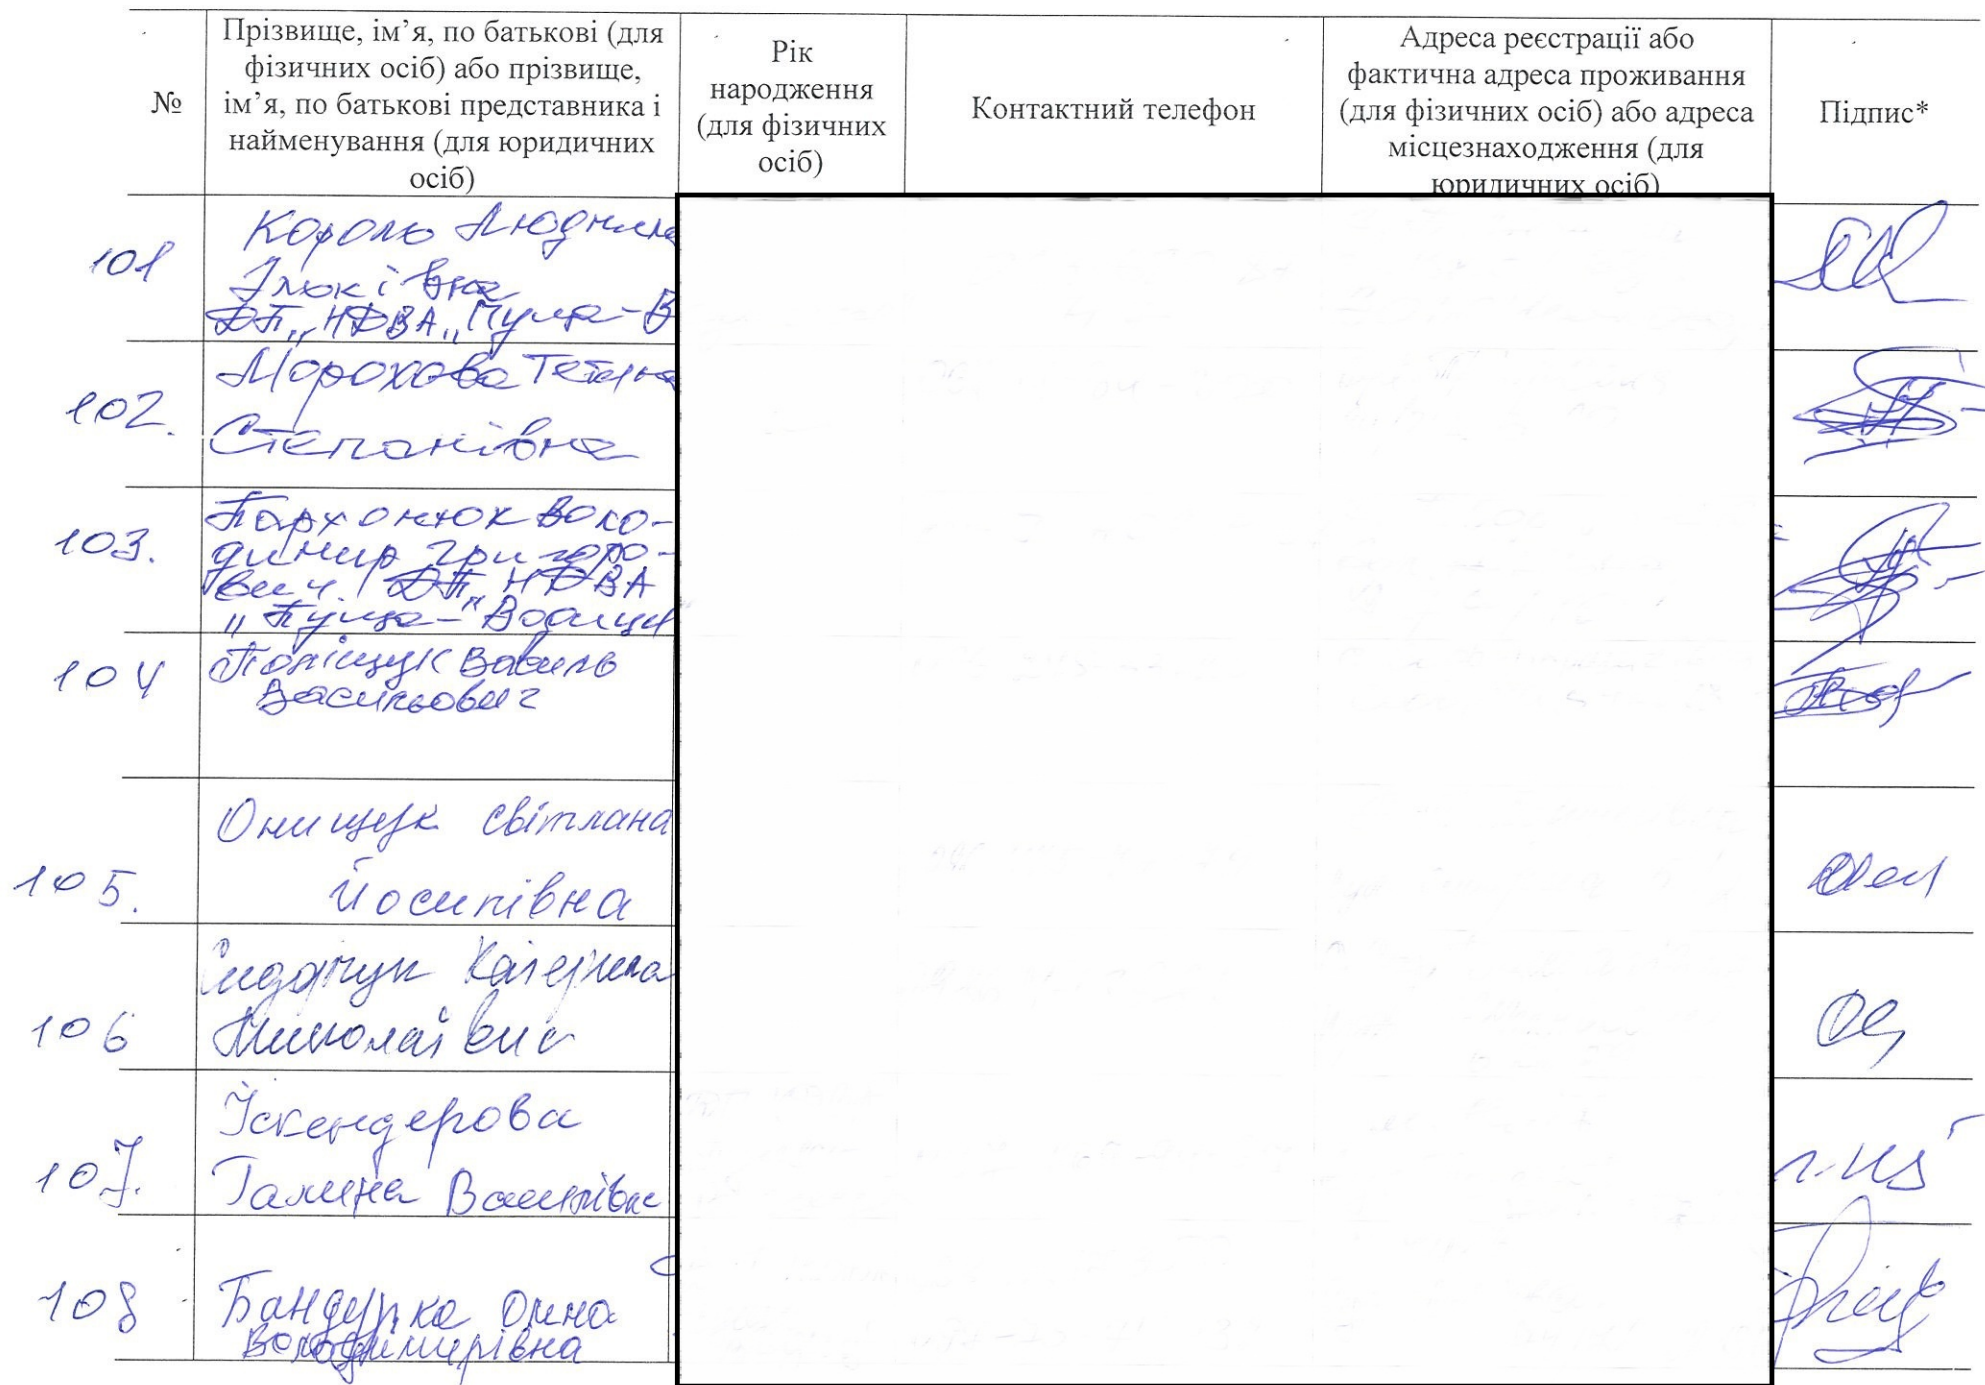 №
Прізвище, ім’я, по батькові (для
фізичних осіб) або прізвище,
ім’я, по батькові представника і
найменування (для юридичних
осіб)
Рік
народження
(для фізичних
осіб)
Контактний телефон
Адреса реєстрації або
фактична адреса проживання
(для фізичних осіб) або адреса
місцезнаходження (для
юридичних осіб)
Підпис*
101
Король Людмила
ДП „НДВА „Пуща-В
102.
Морохова Тетяна
Степанівна
103.
Пархонюк Воло-
димир Григоро-
вич. ДП „НДВА
„Пуща-Водиця
104
Поліщук Василь
Васильович
105.
Онищук Світлана
Йосипівна
106
Сидорчук Катерина
Миколаївна
107.
Іскендерова
Галина
108
Бандурка
Володимирівна